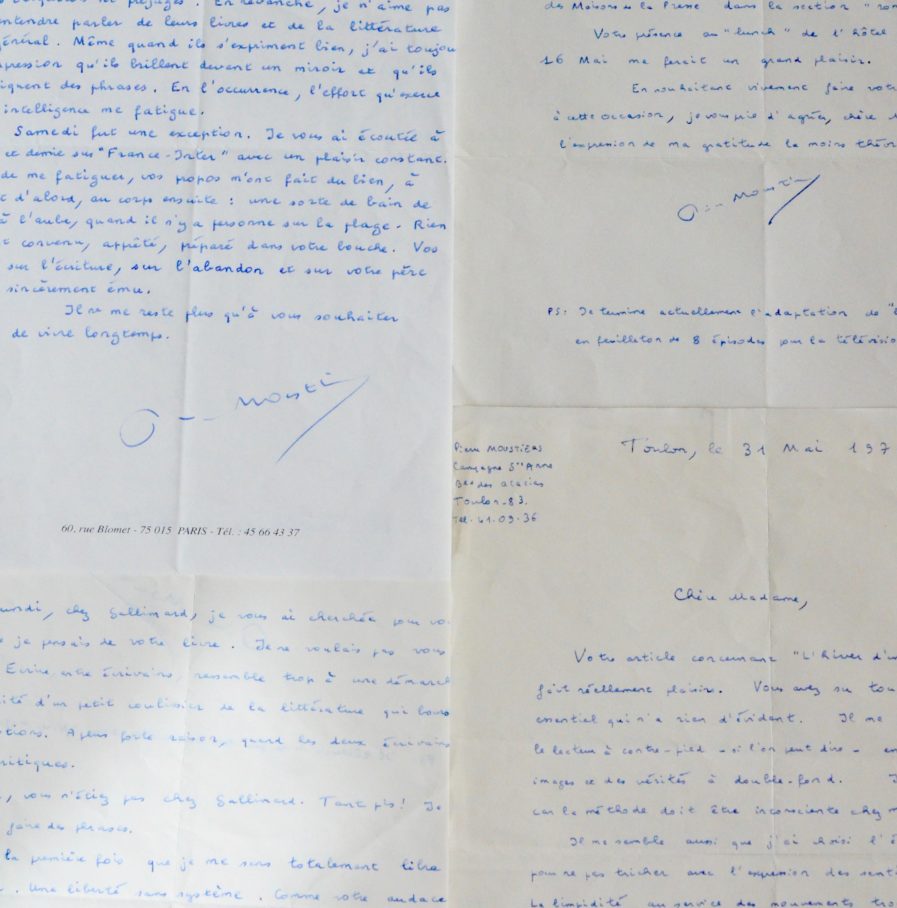 et préjugés. En revanche, je n'aime pas
entendre parler de leurs livres et de la littérature
général. Même quand ils s'expriment bien, j'ai toujou
impression qu'ils brillent devant un miroir et qu'ils
des phrases. En l'occurrence, l'effort qu'exerce
intelligence me fatigue.
Samedi fut une exception. Je vous ai écoutée à
et demie sur "France-Inter" avec un plaisir constant.
de me fatiguer, vos propos m'ont fait du bien, à
d'abord, au corps ensuite : une sorte de bain de
à l'aube, quand il n'y a personne sur la plage. Rien
convenu, apprêté, préparé dans votre bouche. Vos
sur l'écriture, sur l'abandon et sur votre père
sincèrement ému.
Il ne me reste plus qu'à vous souhaiter
de vivre longtemps.
60, rue Blomet - 75 015 PARIS - Tél. : 45 66 43 37
des Maisons de la Presse dans la section "rom
Votre présence au "lunch" de l'hôtel
16 Mai me ferait un grand plaisir.
En souhaitant vivement faire vot
à cette occasion, je vous prie d'agréer, chère
l'expression de ma gratitude la moins théor
PS: Je termine actuellement l'adaptation de
en feuilleton de 8 épisodes pour la télévisio
undi, chez Gallimard, je vous ai cherchée pour vo
je pensais de votre livre. Je ne voulais pas vous
Ecrire, entre écrivains, ressemble trop à une démarch
ité d'un petit coulissier de la littérature qui
A plus forte raison, quand les deux écrivains
critiques.
, vous n'étiez pas chez Gallimard. Tant pis! Je
faire des phrases.
la première fois que je me sens totalement libre
. Une liberté sans système. Comme votre audace
Pierre MOUSTIERS
Campagne Ste Anne
Bld des acacias
Toulon. 83.
Tél. 41.09.36
Toulon, le 31 Mai 197
Chère Madame,
Votre article concernant "L'hiver d'u
fait réellement plaisir. Vous avez su tou
essentiel qui n'a rien d'évident. Il me
le lecteur à contre-pied - si l'on peut dire - en
images et des vérités à double-fond. I
car la méthode doit être inconsciente chez
Il me semble aussi que j'ai choisi l'é
pour ne pas tricher avec l'expression des sent
La limpidité au service des mouvements tro